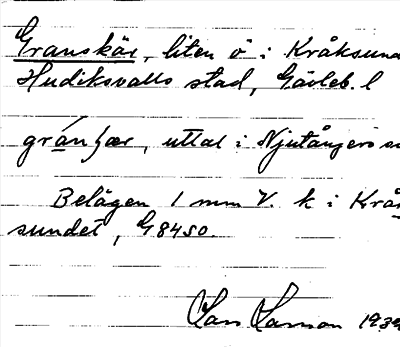 Granskär, liten ö i Kråksund
Hudiksvalls stad, Gävleb. l
gránʃær, uttal i Njutångers
Belägen 1 mm V. k i Kråk
sundet, G8450.
Lars Larsson 1934